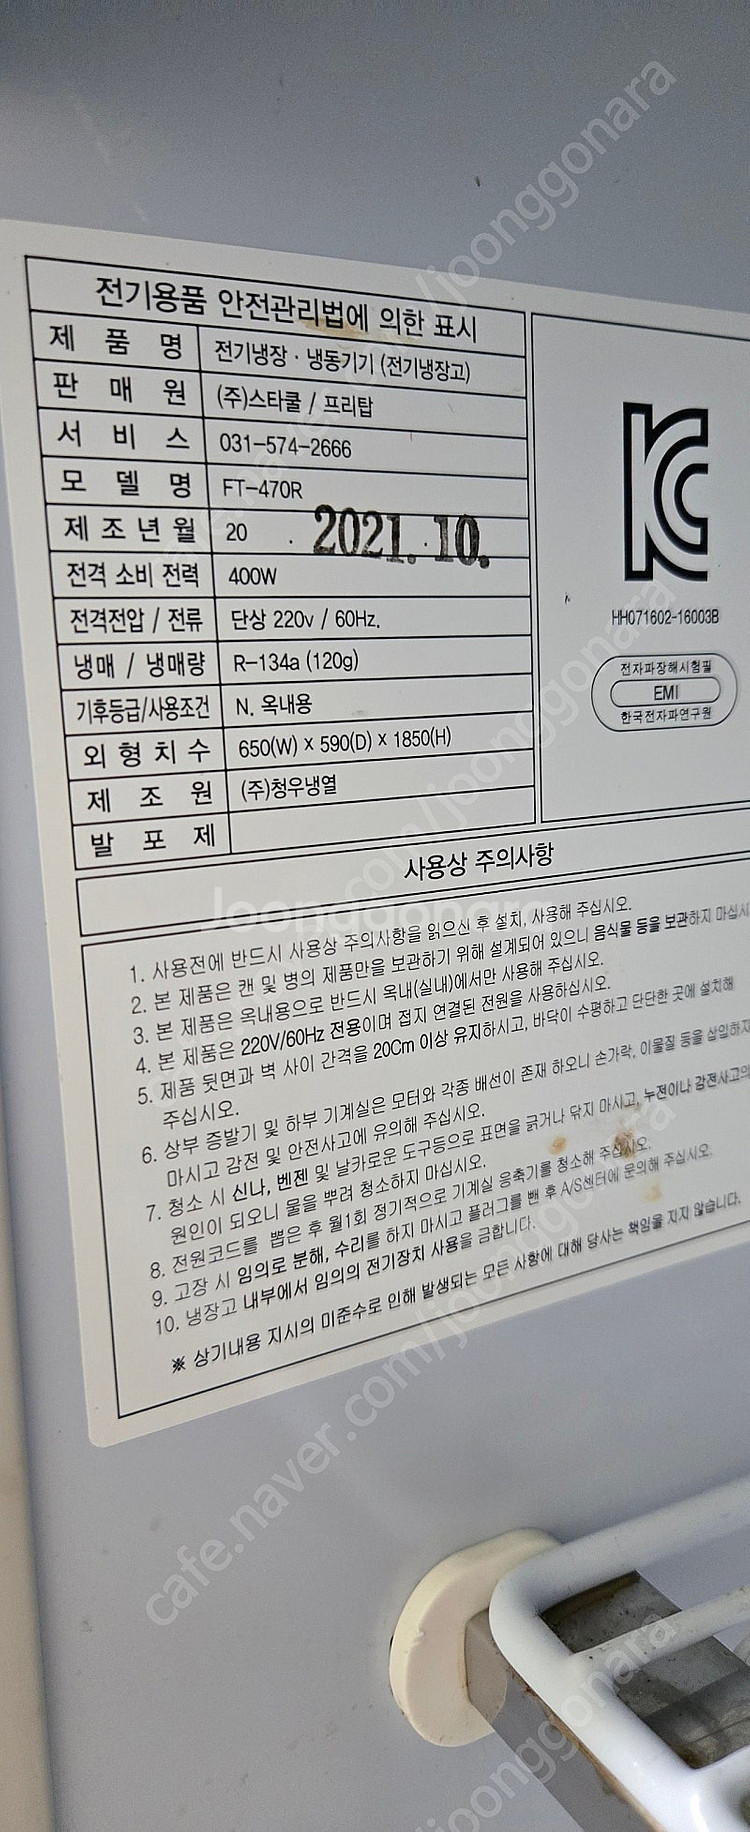 전기용품 안전관리법에 의한 표시
제 품 명 전기냉장 · 냉동기기 (전기냉장고)
판 매 원 (주)스타쿨 / 프리탑
서 비 스 031-574-2666
모 델 명 FT-470R
제 조 년 월 20 . 2021. 10.
전격 소비 전력 400W
전격전압 / 전류 단상 220v / 60Hz.
냉매 / 냉매량 R-134a (120g)
기후등급/사용조건 N. 옥내용
외 형 치 수 650(W) x 590(D) x 1850(H)
제 조 원 (주)청우냉열
발 포 제
HH071602-16003B
전자파장해시험필
EMI
한국전자파연구원
사용상 주의사항
1. 사용전에 반드시 사용상 주의사항을 읽으신 후 설치, 사용해 주십시오.
2. 본 제품은 캔 및 병의 제품만을 보관하기 위해 설계되어 있으니 음식물 등을 보관하지 마십시
3. 본 제품은 옥내용으로 반드시 옥내(실내)에서만 사용해 주십시오.
4. 본 제품은 220V/60Hz 전용이며 접지 연결된 전원을 사용하십시오.
5. 제품 뒷면과 벽 사이 간격을 20Cm 이상 유지하시고, 바닥이 수평하고 단단한 곳에 설치해
주십시오.
6. 상부 증발기 및 하부 기계실은 모터와 각종 배선이 존재 하오니 손가락, 이물질 등을 삽입하지
마시고 감전 및 안전사고에 유의해 주십시오.
7. 청소 시 신나, 벤젠 및 날카로운 도구등으로 표면을 긁거나 닦지 마시고, 누전이나 감전사고의
원인이 되오니 물을 뿌려 청소하지 마십시오.
8. 전원코드를 뽑은 후 월1회 정기적으로 기계실 응축기를 청소해 주십시오.
9. 고장 시 임의로 분해, 수리를 하지 마시고 플러그를 뺀 후 A/S센터에 문의해 주십시오.
10. 냉장고 내부에서 임의의 전기장치 사용을 금합니다.
※ 상기내용 지시의 미준수로 인해 발생되는 모든 사항에 대해 당사는 책임을 지지 않습니다.
Joonggonara
cafe.naver.com/joonggonara